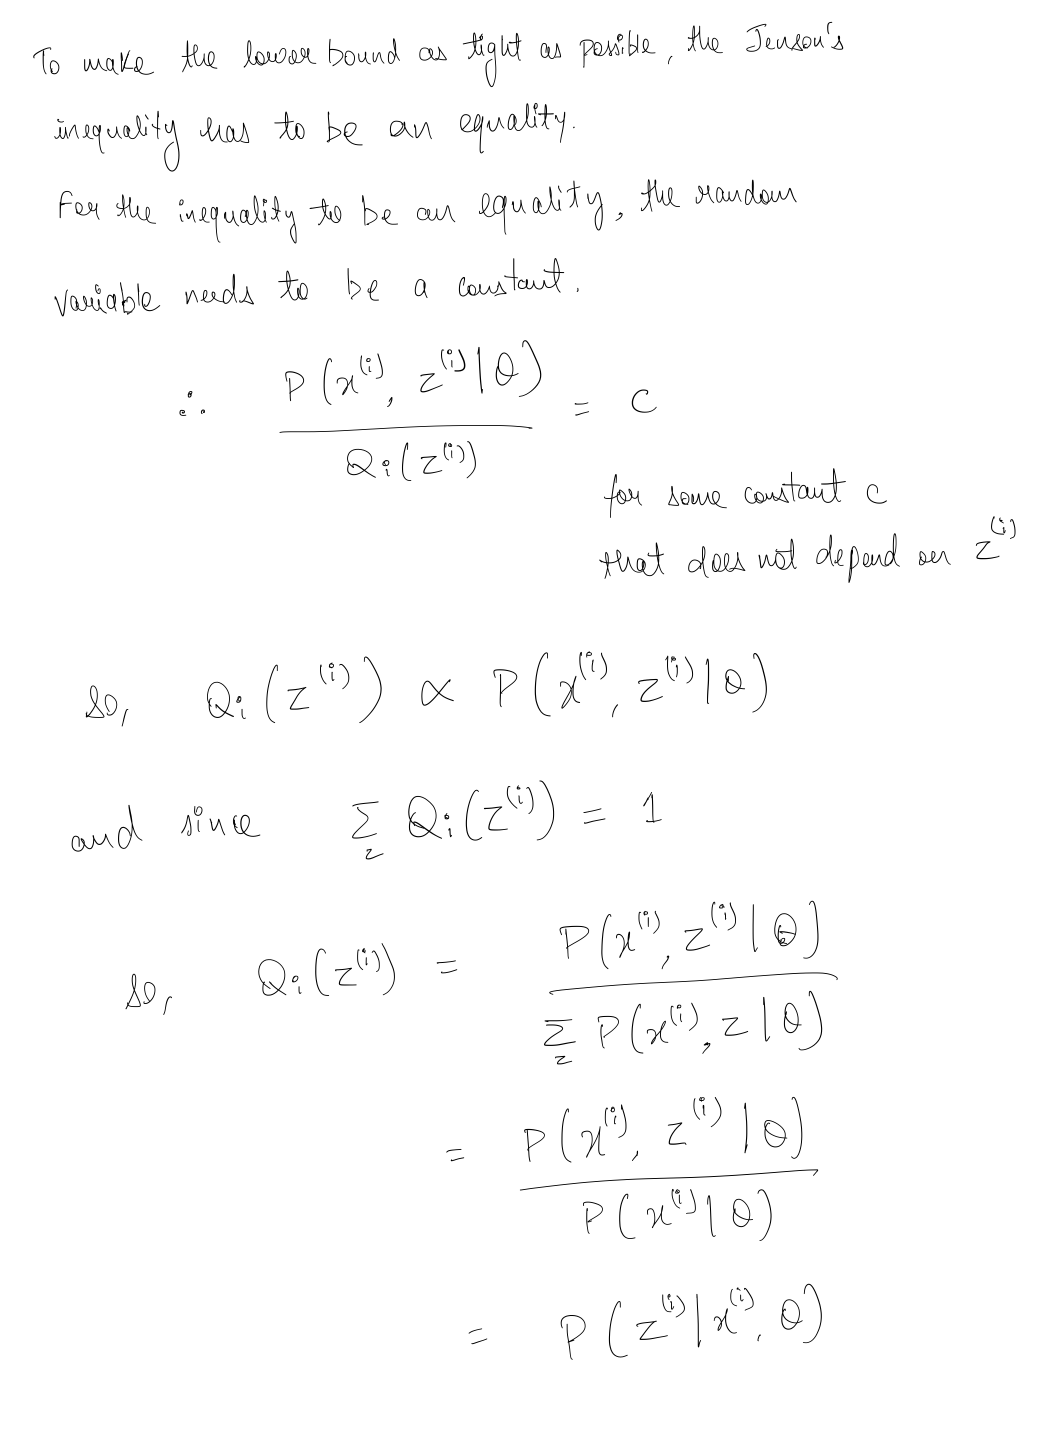 To make the lower bound as tight as possible, the Jenson's
inequality has to be an equality.
For the inequality to be an equality, the random
variable needs to be a constant.
∴ P(x^(i), z^(i) | θ) / Q_i(z^(i)) = c
for some constant c
that does not depend on z^(i)
So, Q_i(z^(i)) ∝ P(x^(i), z^(i) | θ)
and since Σ_z Q_i(z^(i)) = 1
So, Q_i(z^(i)) = P(x^(i), z^(i) | θ) / Σ_z P(x^(i), z | θ)
= P(x^(i), z^(i) | θ) / P(x^(i) | θ)
= P(z^(i) | x^(i), θ)